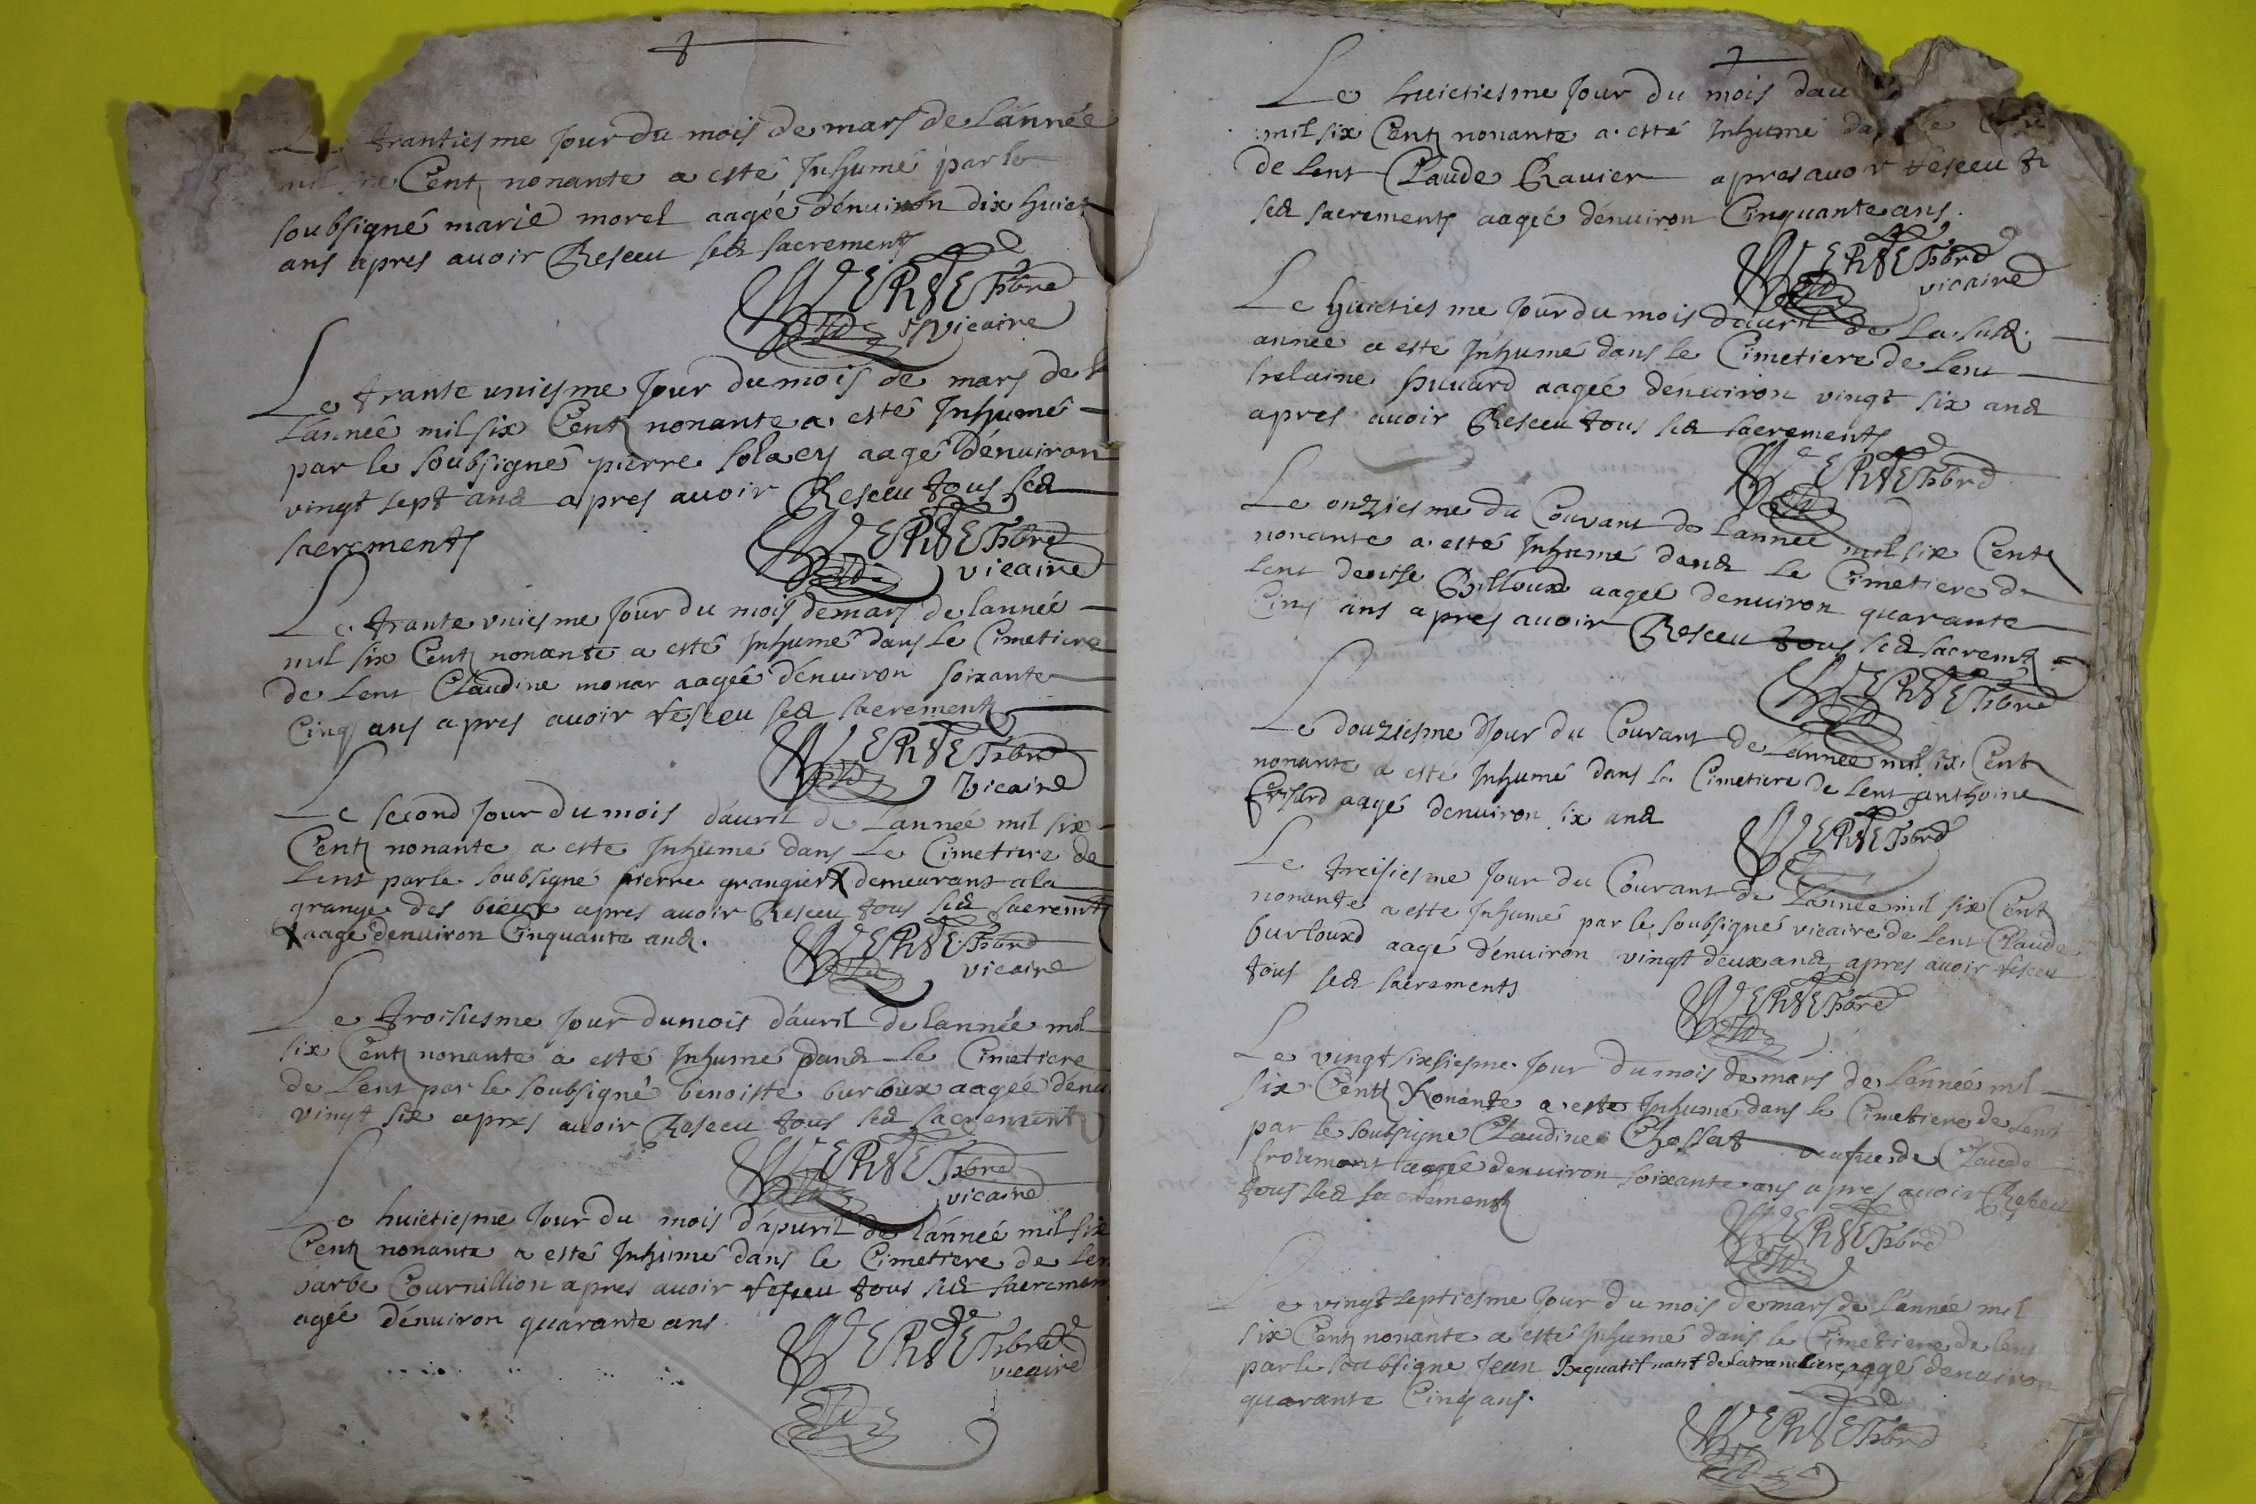 Le trantiesme jour du mois de mars de l'année
mil six Centz nonante a esté Inhumé par le
soubsigné marie morel aagée d'énuiron dix huict
ans apres auoir Resceu sed sacrementz
Vicaire
Le trante uniesme Jour du mois de mars de
l'année mil six Centz nonante a esté Inhumé
par le soubsigné pierre aagé d'énuiron
vingt sept and apres auoir Resceu tous sed
sacrementz
vicaire
Le trante vniesme Jour du mois de mars de lannée
mil six Centz nonante a esté Inhumé dans le Cimetiere
de Lent Claudine monar aagée d'énuiron soixante
Cinq ans apres auoir resceu sed sacrementz
Vicaire
Le second Jour du mois d'auril de Lannée mil six
Centz nonante a este Inhumé dans Le Cimetiere de
Lent par le soubsigné pierre grangier X demeurant a la
grange des apres auoir Resceu tous sed sacremtz
X aagé denuiron Cinquante and.
vicaire
Le troisiesme Jour du mois d'auril de lannée mil
six Centz nonante a esté Inhumé dand le Cimetiere
de Lent par le soubsigné benoiste burloux aagée
vingt six apres auoir Resceu tous sed sacrementz
vicaire
Le huictiesme Jour du mois d'apuril de l'année mil six
Centz nonante a esté Inhumé dans le Cimetiere de
barbe Cournillion apres auoir resceu tous sed
agée d'énuiron quarante ans
vicaire
Le huictiesme Jour du mois
mil six Centz nonante a esté Inhumé
de Lent Claude Rauier apres auoir resceu
sed sacrementz aagé d'énuiron Cinquante ans.
vicaire
Le huictiesme Jour du mois d'auril de La susd.
année a esté Inhumé dans le Cimetiere de Lent
helaine aagée d'énuiron vingt six and
apres auoir Resceu tous sed sacrementz
Le onziesme du Couvant de Lannée mil six Centz
nonante a esté Inhumé dand Le Cimetiere de
Lent denise Billoud aagée denuiron quarante
Cinq ans apres auoir Resceu tous sed sacremtz
Le douziesme Jour du Courant de Lannée mil six Centz
nonante a esté Inhumé dans le Cimetiere de Lent anthoine
aagé denuiron six and
Le treisiesme Jour du Courant de Lannée mil six Centz
nonante a este Inhumé par le soubsigné vicaire de Lent Claude
burlouxd aagé d'énuiron vingt deux and apres auoir resceu
tous sed sacrements
Le vingt sixsiesme Jour du mois de mars de l'année mil
six Centz Nonante a este Inhumé dans le Cimetiere de Lent
par le soubsigné Claudine Chossat veufue de Claude
fromont aagée denuiron soixante ans apres auoir Resceu
tous sed sacrementz
Le vingt septiesme Jour du mois de mars de l'année mil
six Centz nonante a esté Inhumé dans le Cimetiere de lent
par le soubsigné Jean natif de la tranclierre aagé denuiron
quarante Cinq ans.